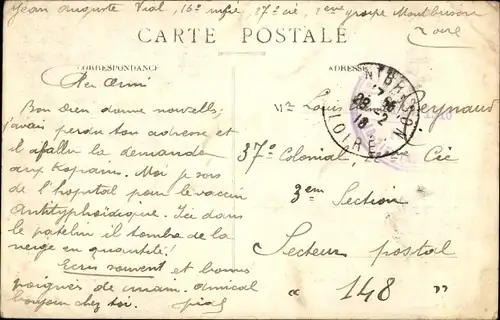 Jean Auguste Vial, 16e infie, 27e cie, 2eme groupe Montbrison
Loire
CARTE POSTALE
CORRESPONDANCE
ADRESSE
Mon ami
Bon Dieu donne nouvelle,
j'avais perdu ton adresse et
il a fallu la demander
aux Moi je sors
de l'hopital pour le vaccin
Antityphoïdique. Ici dans
le patelin il tombe de la
neige en quantité!
Ecris souvent et bonnes
poignées de main. amical
bonjour chez toi. Vial
MONTBRISON
17 35
28-2
18
LOIRE
Mr Louis Reynaud
37e Colonial, Cie
3em Section
Secteur postal
" 148 "